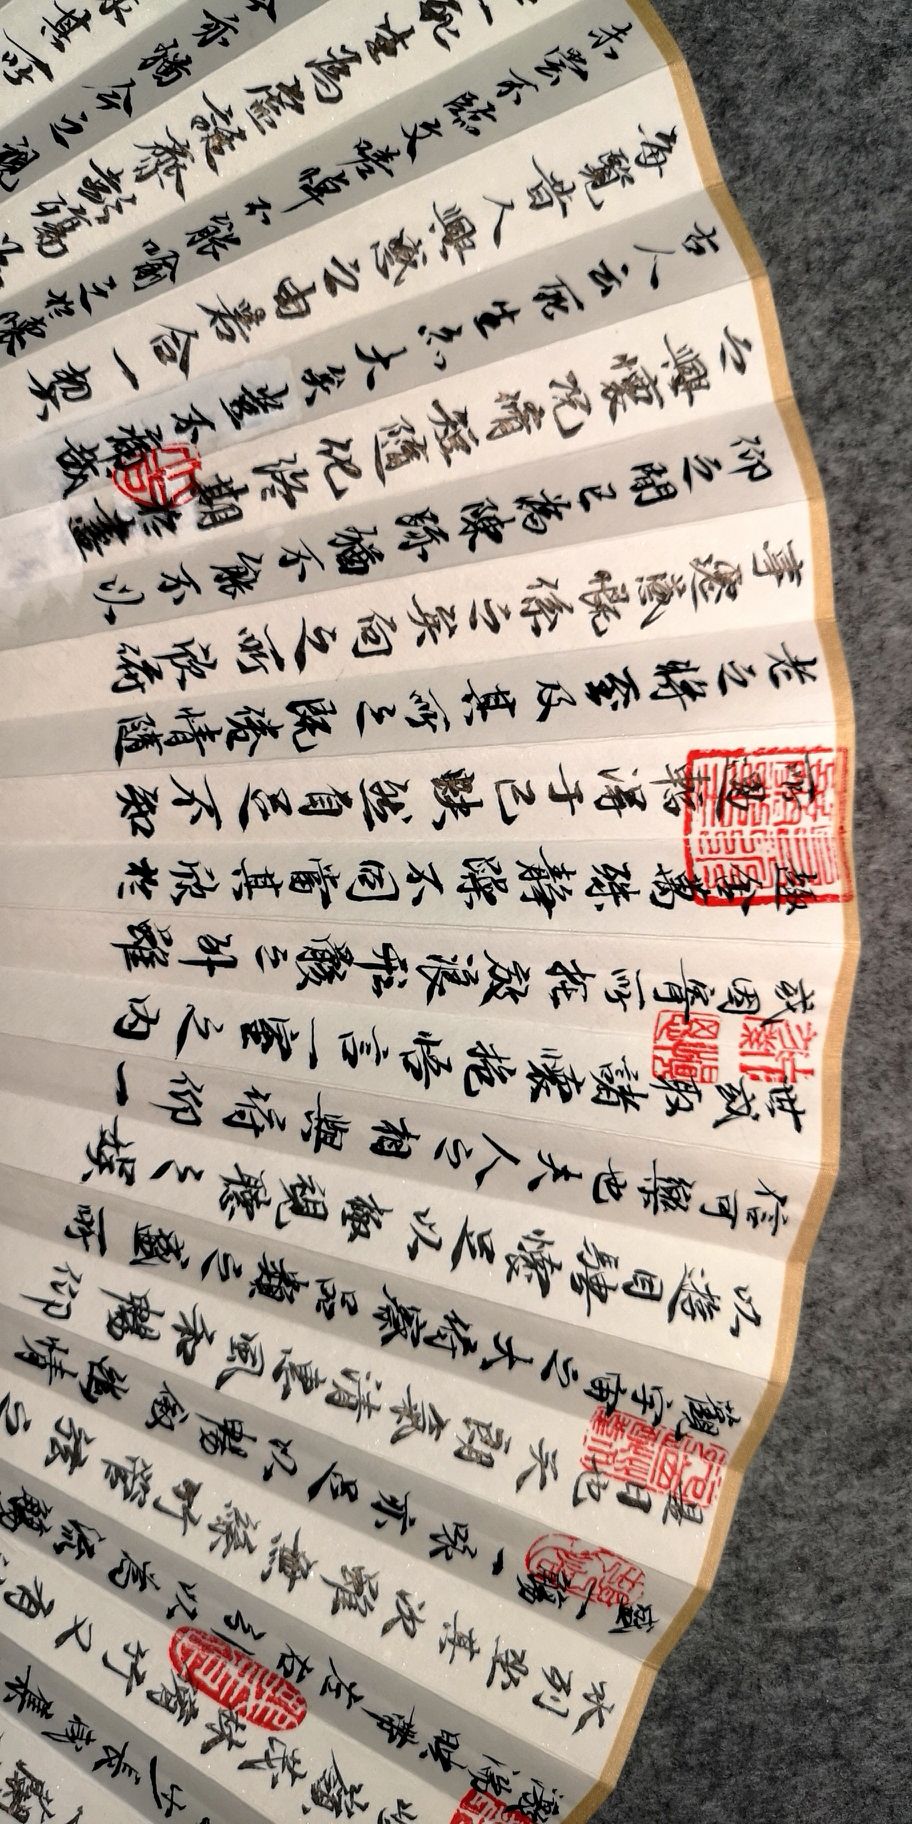 領茂林脩竹又有
湍暎帶左右引以為流觴
水列坐其次雖無絲竹管弦之
盛一觴一詠亦足以暢敘幽情
是日也天朗氣清惠風和暢仰
觀宇宙之大俯察品類之盛所
以遊目騁懷足以極視聽之娛
信可樂也夫人之相與俯仰一
世或取諸懷抱悟言一室之內
或因寄所託放浪形骸之外雖
趣舍萬殊靜躁不同當其欣於
所遇暫得于己快然自足不知
老之將至及其所之既倦情隨
事遷感慨係之矣向之所欣俯
仰之間已為陳跡猶不能不以
之興懷況脩短隨化終期於盡
古人云死生亦大矣豈不痛哉
每覽昔人興感之由若合一契
未嘗不臨文嗟悼不能喻之於懷
一死生為虛誕齊彭殤
今亦猶今之視
異所